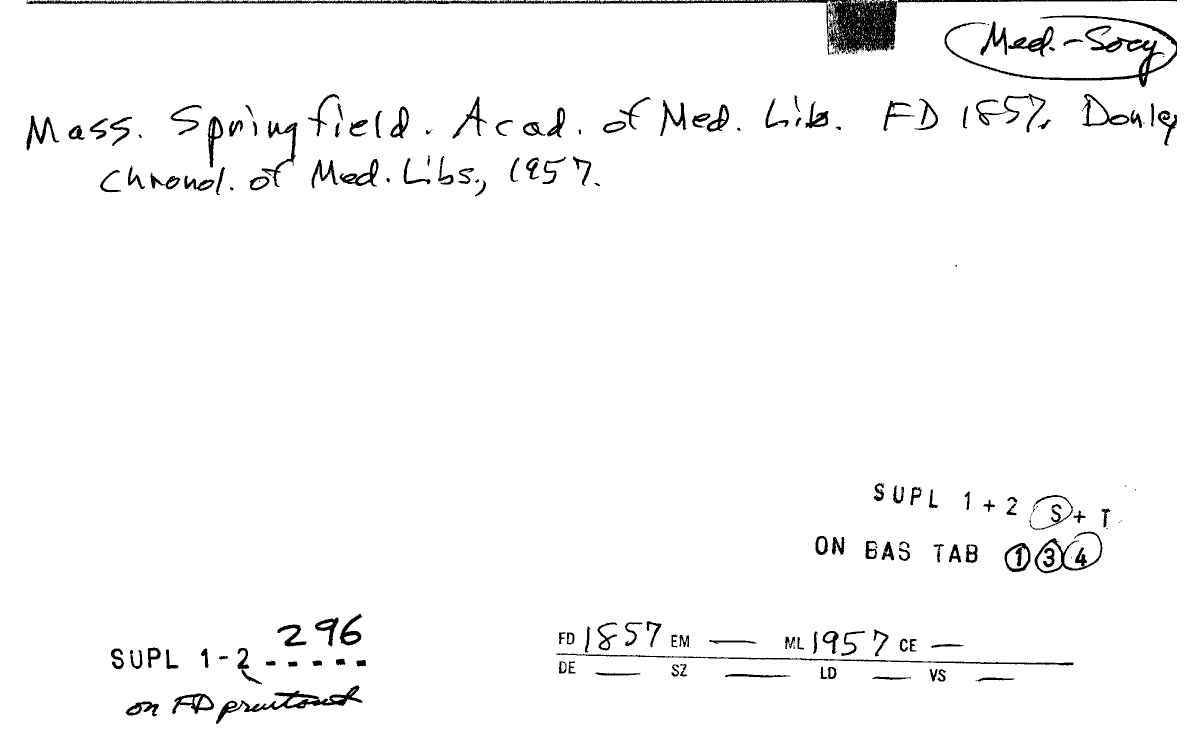 Med.-Socy
Mass. Springfield. Acad. of Med. Lib. FD 1857. Donley
Chronol. of Med. Libs., 1957.
SUPL 1+2 S+T
ON BAS TAB 1 3 4
296
SUPL 1-2 -----
on FD printout
FD 1857 EM — ML 1957 CE —
DE — SZ — LD — VS —